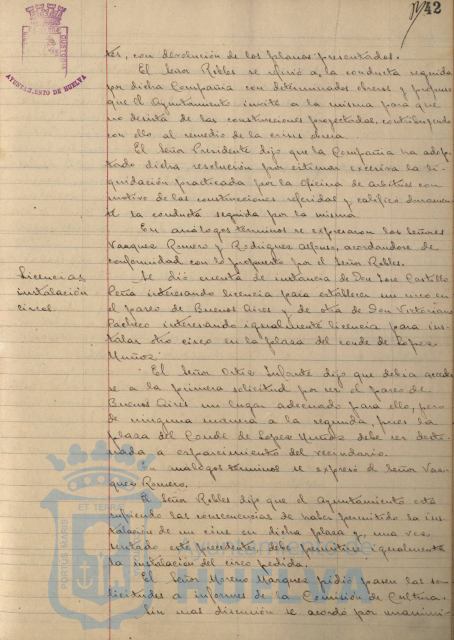 42
AYUNTAMIENTO DE HUELVA
tes, con devolución de los planos presentados.
El Señor Robles se refirió a la conducta seguida
por dicha Compañia con determinados obreros y propuso
que el Ayuntamiento invite a la misma para que
no desista de las construcciones proyectadas, contribuyendo
con ello al remedio de la crisis obrera.
El Señor Presidente dijo que la Compañia ha adop-
tado dicha resolución por estimar excesiva la li-
quidación practicada por la Oficina de Arbitrios con
motivo de las construcciones referidas y calificó duramen-
te la conducta seguida por la misma.
En análogos términos se expresaron los Señores
Vazquez Romero y Rodriguez Alfonso, acordandose de
conformidad con lo propuesto por el Señor Robles.
Licencias
instalación
circos
Se dió cuenta de instancia de Don Jose Castillo
Peña interesando licencia para establecer un circo en
el paseo de Buenos Aires y de otra de Don Victoriano
Pacheco interesando igualmente licencia para ins-
talar otro circo en la plaza del conde de Lopez
Muñoz.
El Señor Ortiz Infante dijo que debia acceder-
se a la primera solicitud por ser el paseo de
Buenos Aires un lugar adecuado para ello, pero
de ninguna manera a la segunda, pues la
plaza del Conde de Lopez Muñoz debe ser desti-
nada a esparcimiento del vecindario.
En analogos terminos se expresó el Señor Vaz-
quez Romero.
El Señor Robles dijo que el Ayuntamiento está
sufriendo las consecuencias de haber permitido la ins-
talación de un cine en dicha plaza y, una vez
sentado este precedente debe permitirse igualmente
la instalación del circo pedida.
El Señor Moreno Marquez pidió pasen las so-
licitudes a informes de la Comisión de Cultura.
Sin mas discusión se acordó por unanimi-
PORTUS MARIS
ET TERRAE
HUELVA